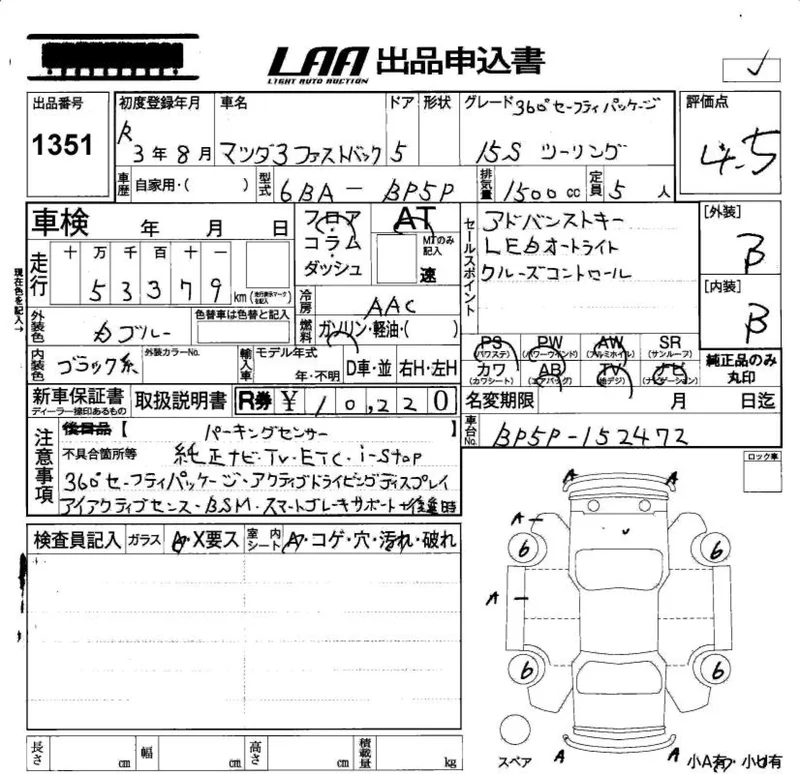 LAA 出品申込書
LIGHT AUTO AUCTION
出品番号 初度登録年月 車名 ドア 形状 グレード 360°セーフティパッケージ 評価点
1351 R 3年8月 マツダ3ファストバック 5 15S ツーリング 4.5
車歴 自家用・( ) 型式 6BA - BP5P 排気量 1500cc 定員 5人
車検 年 月 日 フロア AT セールスポイント アドバンストキー [外装]
走行 十 万 千 百 十 一 コラム MTのみ記入 LEDオートライト B
5 3 3 7 9 km (走行表示マークを記入) ダッシュ 速 クルーズコントロール
現在色を記入→ 冷房 AAC [内装]
外装色 カブルー 色替車は色替と記入 燃料 ガソリン・軽油・( ) B
内装色 ブラック系 外装カラーNo. 輸入車 モデル年式 年・不明 D車・並 右H・左H
PS (パワステ) PW (パワーウインド) AW (アルミホイル) SR (サンルーフ) 純正品のみ
カワ (カワシート) AB (エアバッグ) TV (地デジ) ナビ (ナビゲーション) 丸印
新車保証書 ディーラー捺印あるもの 取扱説明書 R券 ¥ 10,220 名変期限 月 日迄
注意事項 後日品【 パーキングセンサー 】 車台No. BP5P-152472
不具合箇所等 純正ナビ・TV・ETC・i-stop ロック車
360°セーフティパッケージ・アクティブドライビングディスプレイ
アイアクティブセンス・BSM・スマートブレーキサポート
検査員記入 ガラス A・X要ス 室内シート A・コゲ・穴・汚れ・破れ
A A
A
6 6
A
6 6
スペア A A
長さ cm 幅 cm 高さ cm 積載量 kg 小A有・小U有